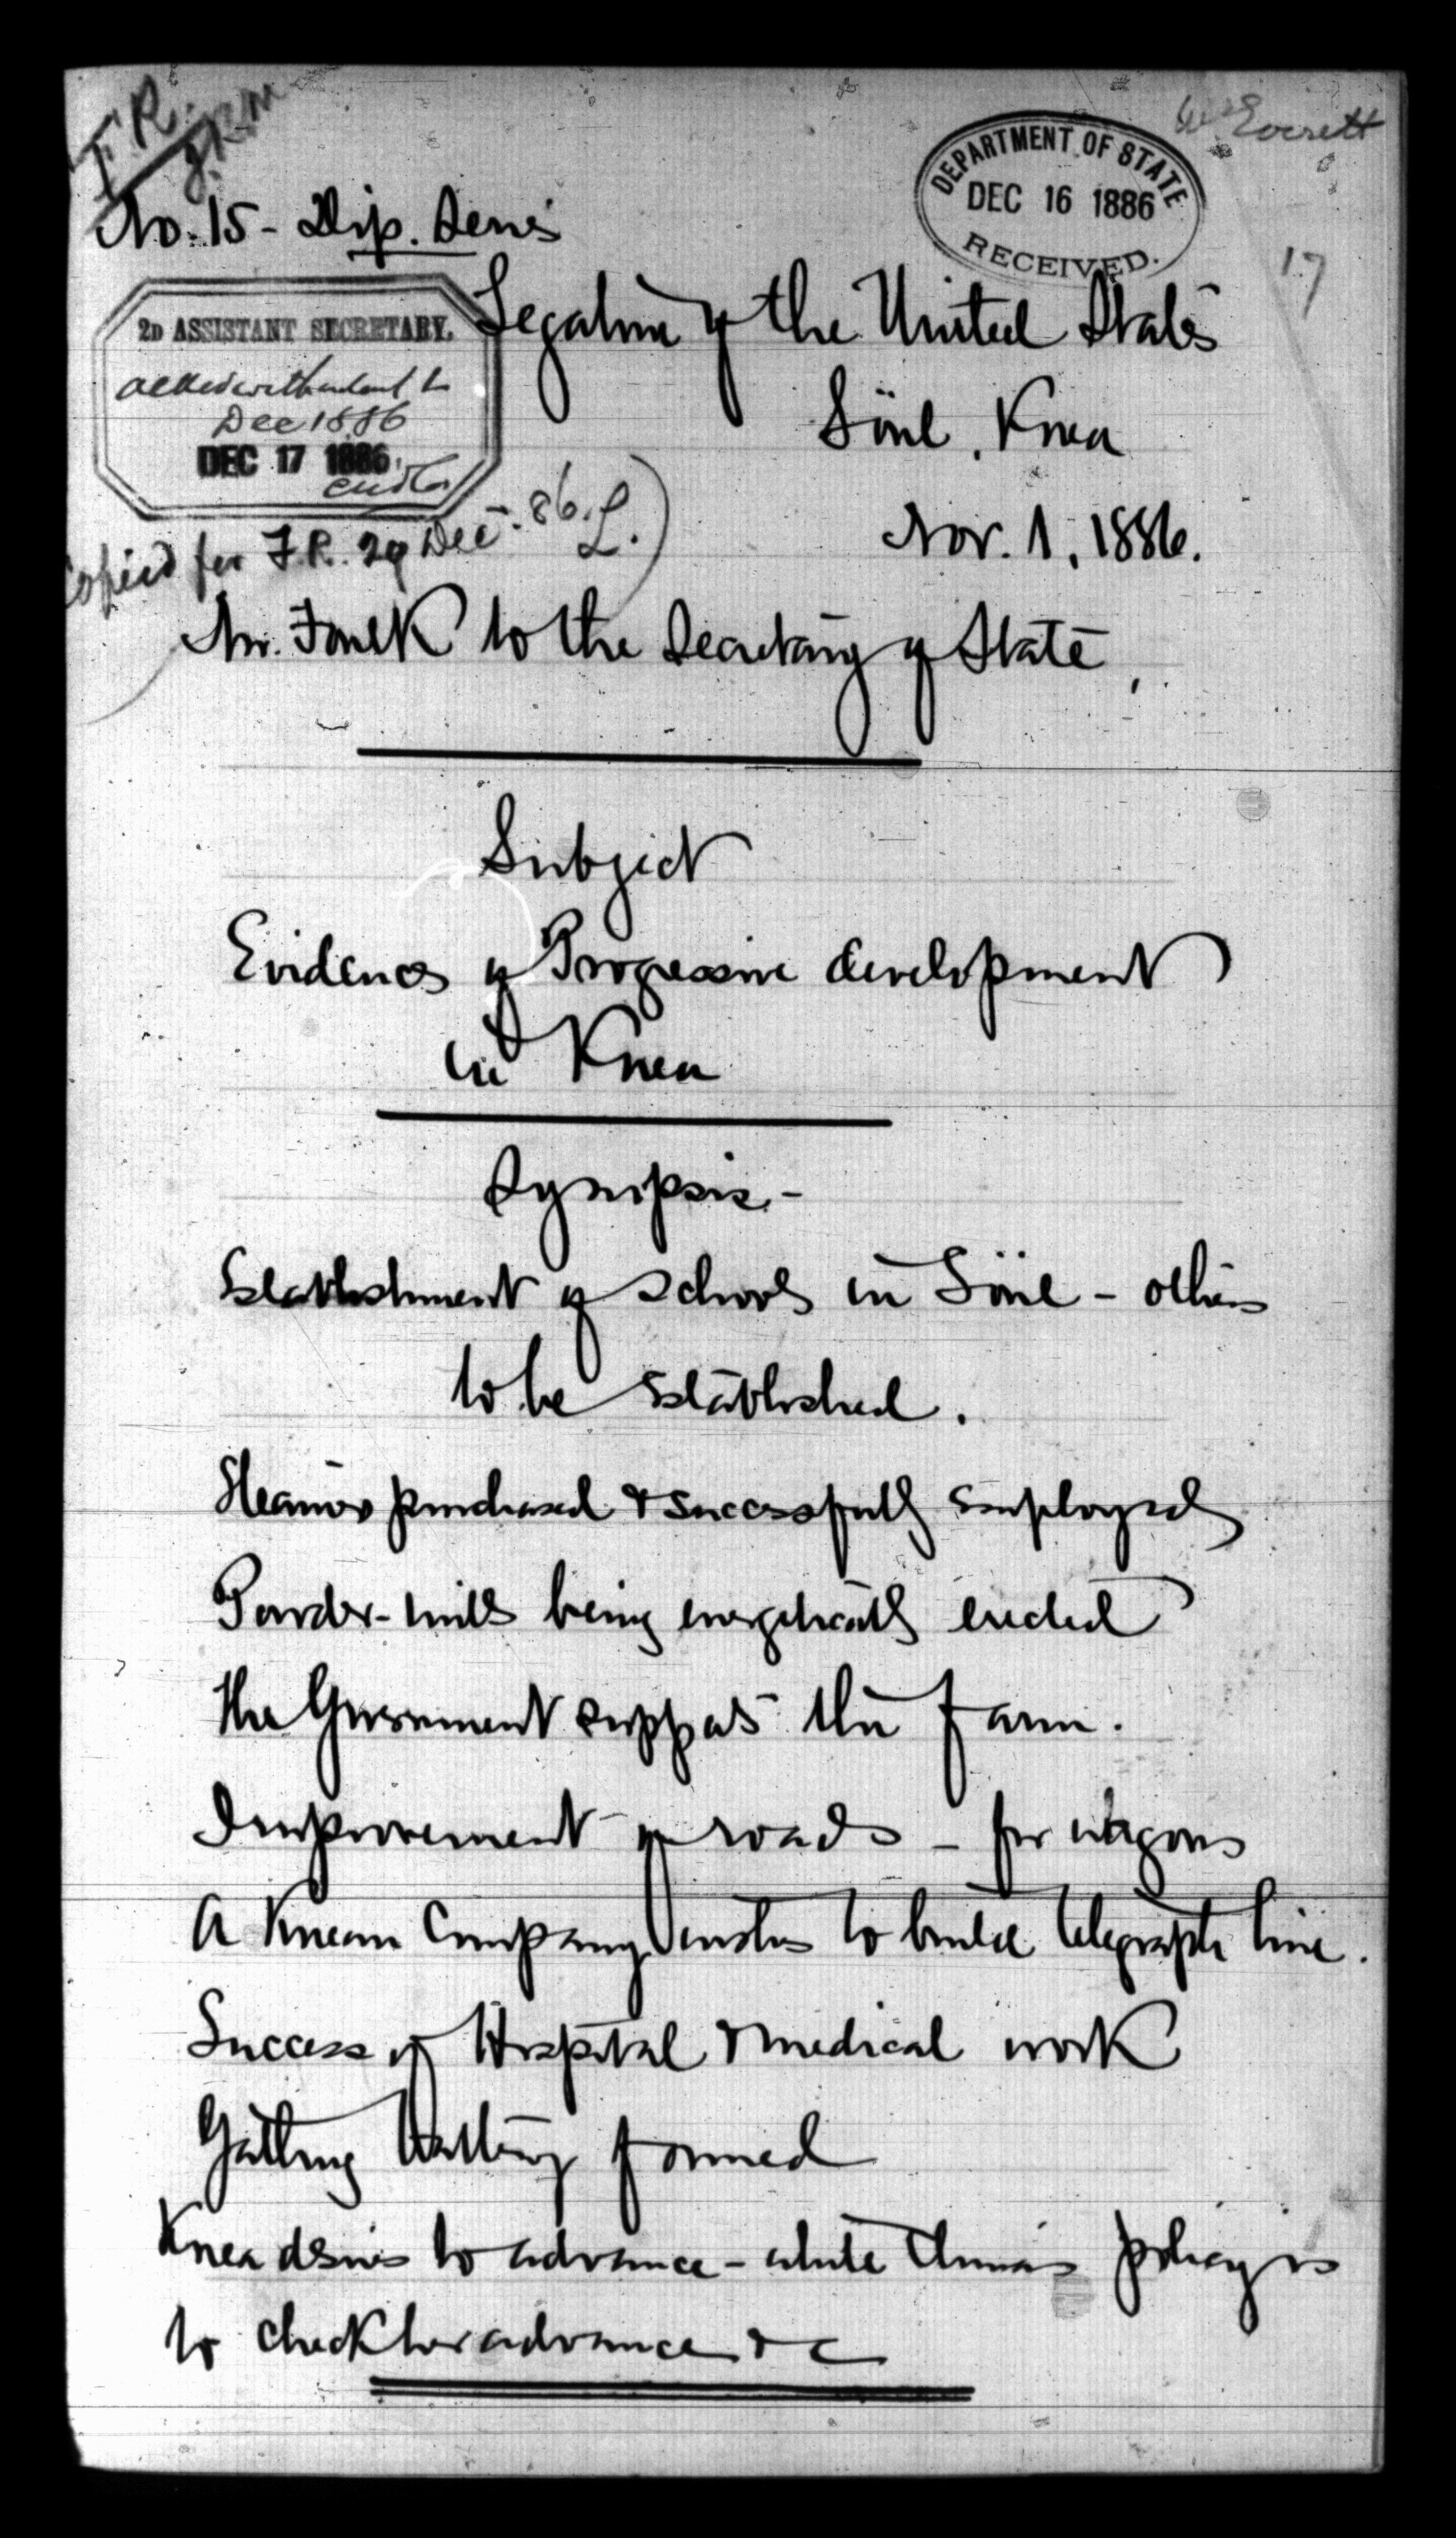 F.R.
Wm Everett
No. 15 - Dip. Series
DEPARTMENT OF STATE
DEC 16 1886
RECEIVED.
17
2D ASSISTANT SECRETARY.
Dec 1886
DEC 17 1886
Legation of the United States
Söul, Korea
Copied for F.R. 29 Dec. 86. L.)
Nov. 1, 1886.
Mr. Foulk to the Secretary of State,
Subject
Evidences of Progressive development
in Korea
Synopsis -
Establishment of schools in Söul - others
to be established.
Steamers purchased & successfully employed
Powder-mills being energetically erected
The Government supports the Farm.
Improvement of roads - for wagons
A Korean Company wishes to build telegraph line.
Success of Hospital & medical work
Gatling Battery formed
Korea desires to advance - while China's policy is
to check her advance &c